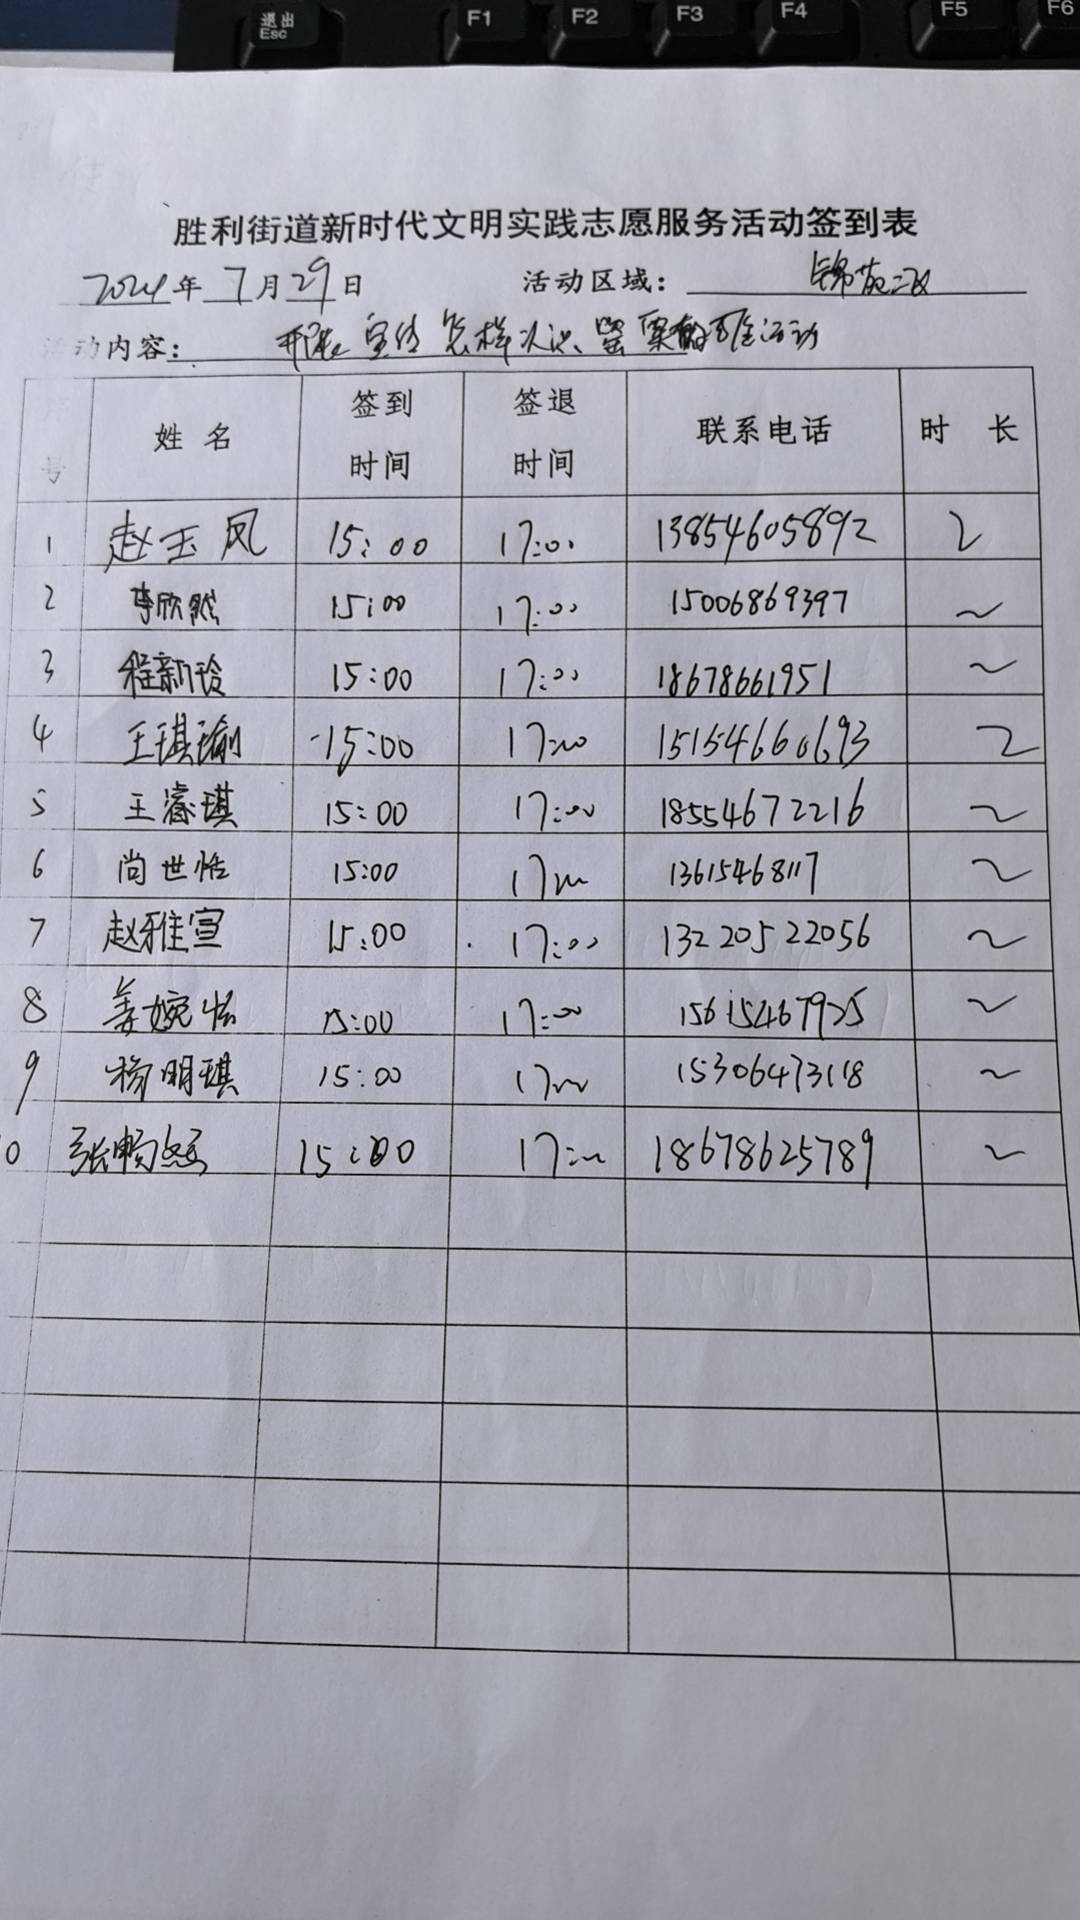 退出
Esc
F1
F2
F3
F4
F5
F6
胜利街道新时代文明实践志愿服务活动签到表
2024年7月29日 活动区域: 锦苑二区
活动内容: 开展宣传怎样认识 活动
号 姓名 签到时间 签退时间 联系电话 时长
1 赵玉凤 15:00 17:00 13854605892 2
2 李欣然 15:00 17:00 15006869397 2
3 程新玲 15:00 17:00 18678661951 2
4 王琪瑜 15:00 17:00 15154660693 2
5 王睿琪 15:00 17:00 18554672216 2
6 尚世恬 15:00 17:00 13615468117 2
7 赵雅萱 15:00 17:00 13220522056 2
8 姜婉 15:00 17:00 15615467925 2
9 杨明琪 15:00 17:00 15306473118 2
0 张畅 15:00 17:00 18678625789 2